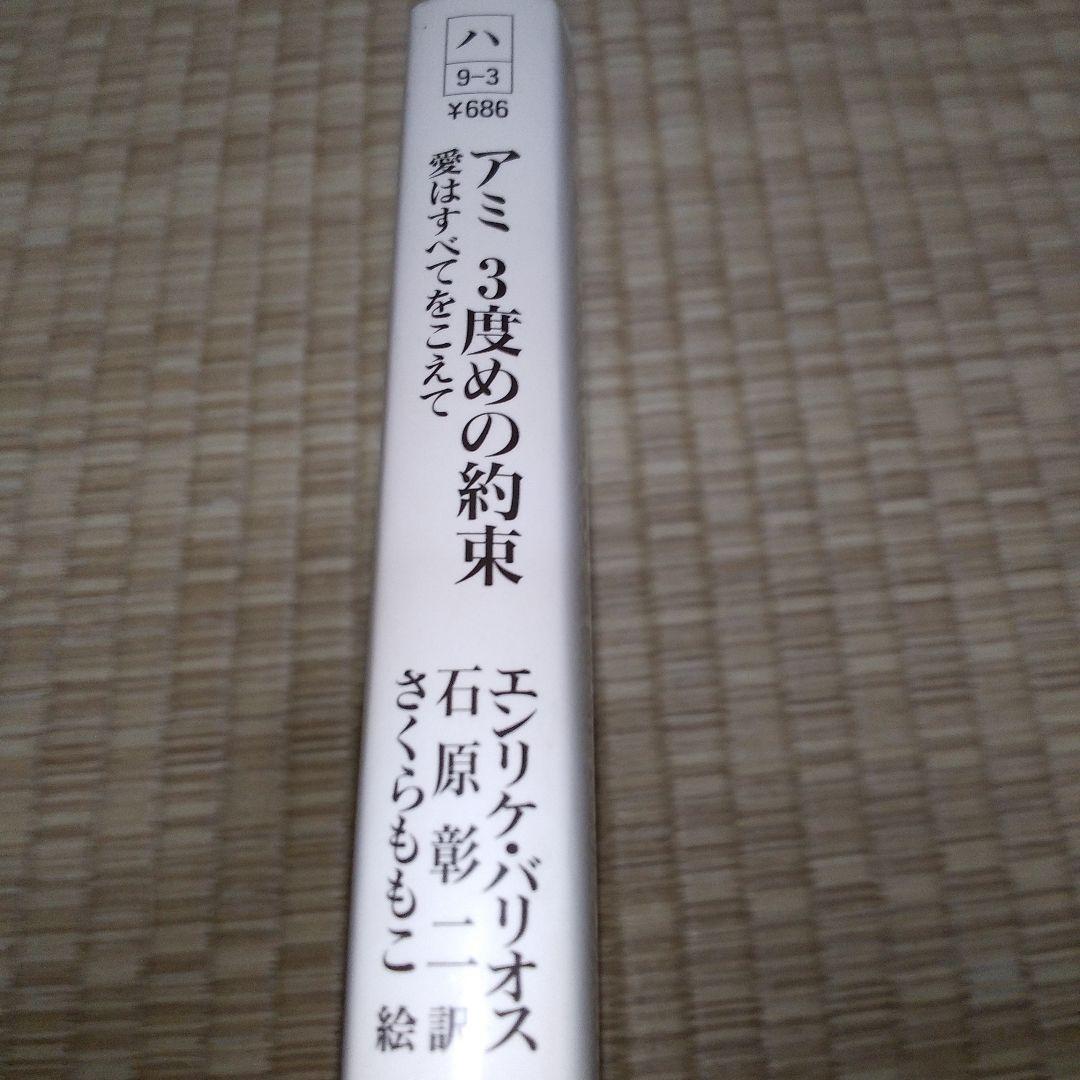 ハ
9-3
¥686
アミ 3度めの約束
愛はすべてをこえて
エンリケ・バリオス
石原彰二 訳
さくらももこ 絵